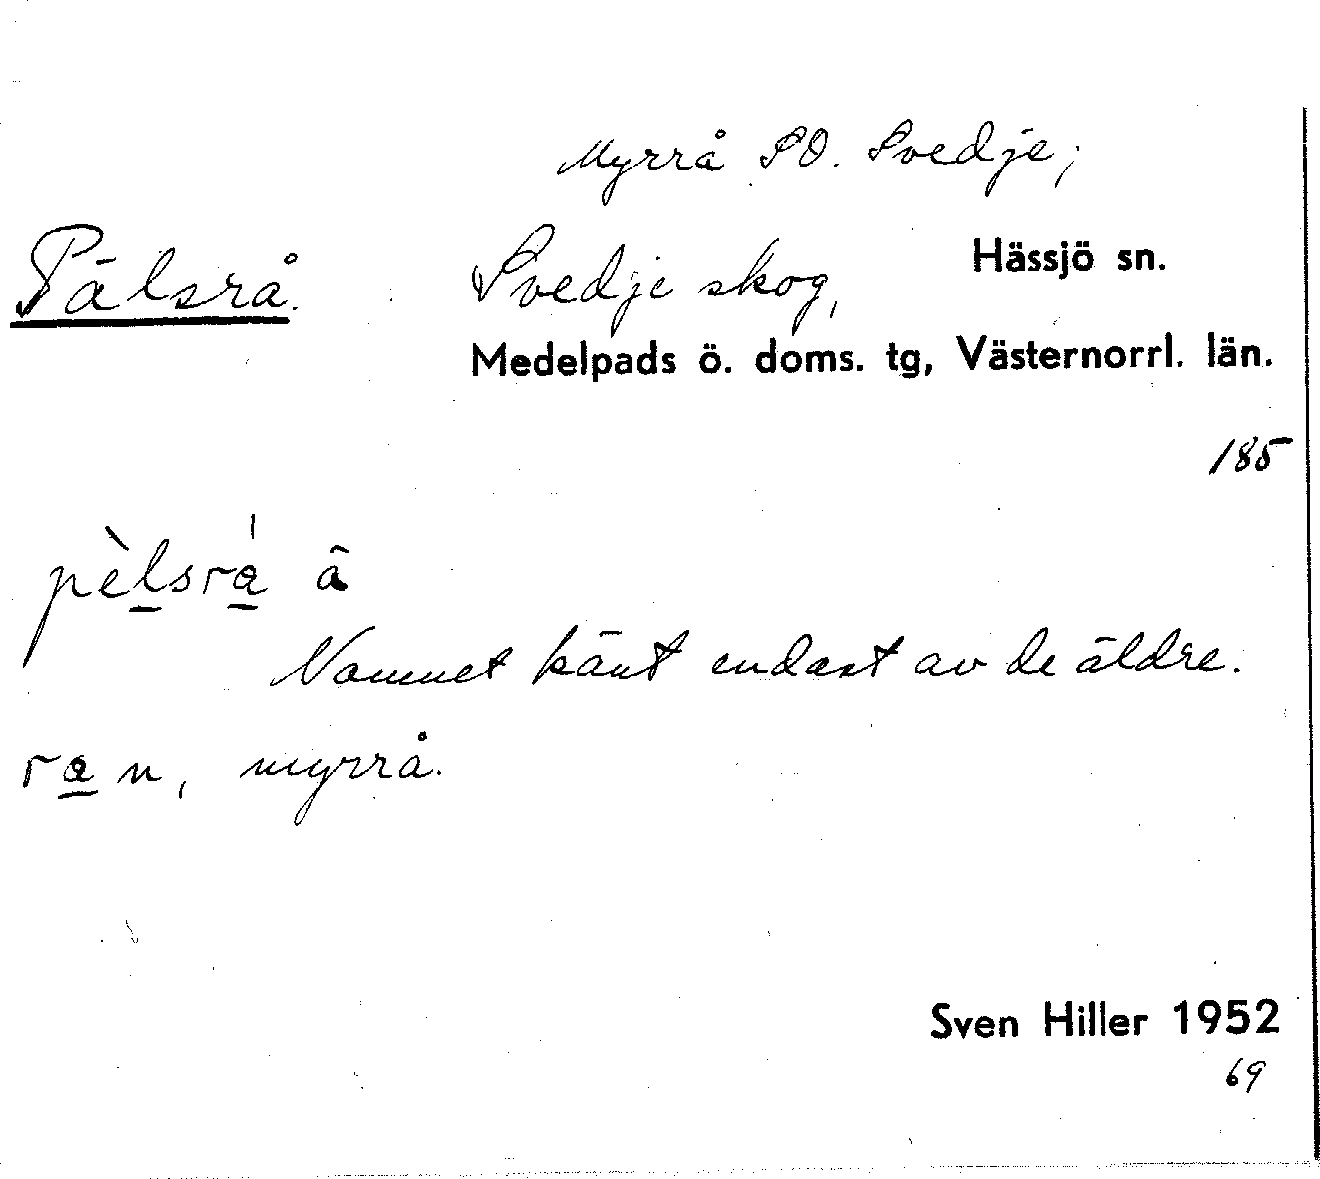 Myrrå SO. Svedje;
Pälsrå.
Svedje skog,
Hässjö sn.
Medelpads ö. doms. tg, Västernorrl. län.
185
pèl̲sra̲̍ ā
Namnet känt endast av de äldre.
ra̲n, myrrå.
Sven Hiller 1952
69